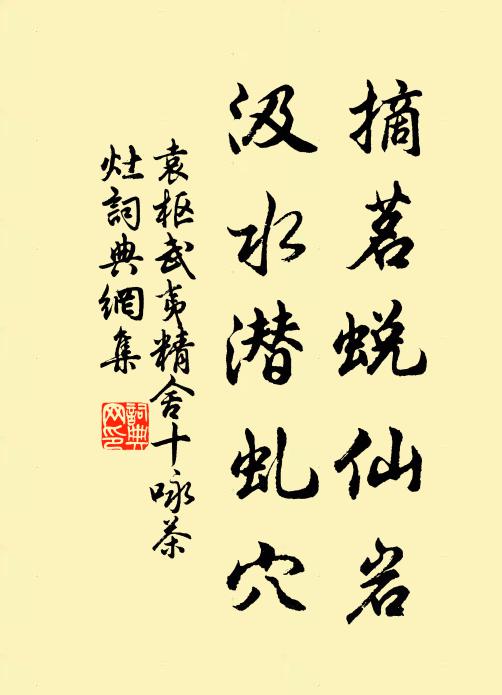 摘茗蜕仙岩
汲水潜虬穴
袁枢武夷精舍十咏茶
灶詞典網集
詞典
网印